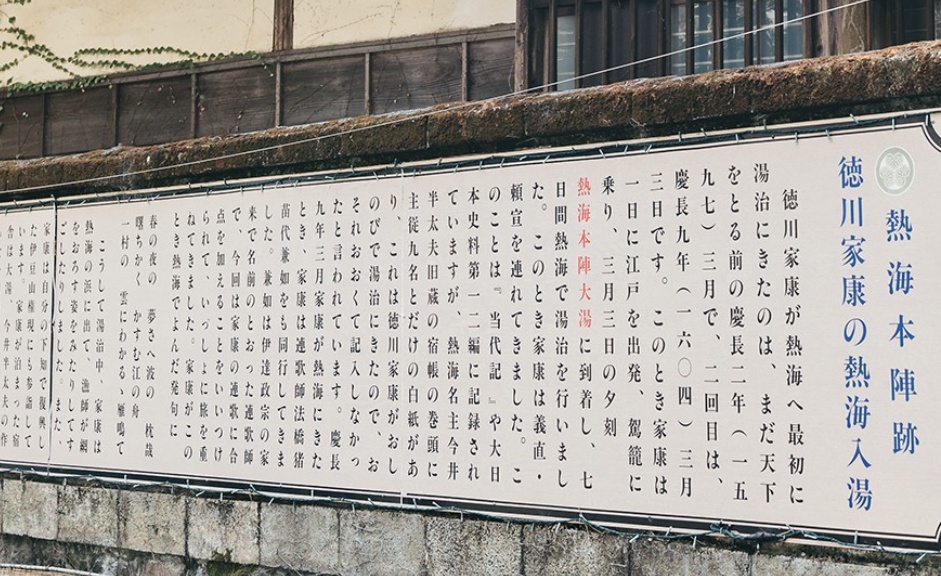 熱海本陣跡
徳川家康の熱海入湯
徳川家康が熱海へ最初に
湯治にきたのは、まだ天下
をとる前の慶長二年(一五
九七)三月で、二回目は、
慶長九年(一六〇四)三月
三日です。このとき家康は
一日に江戸を出発、駕籠に
乗り、三月三日の夕刻
熱海本陣大湯に到着し、七
日間熱海で湯治を行いまし
た。このとき家康は義直・
頼宣を連れてきました。こ
のことは『当代記』や大日
本史料第一二編に記録され
ていますが、熱海名主今井
半太夫旧蔵の宿帳の巻頭に
主従九名とだけの白紙があ
り、これは徳川家康がおし
のびで湯治にきたので、お
それおおくて記入しなかっ
たと言われています。慶長
九年三月家康が熱海にきた
とき、家康は連歌師法橋猪
苗代兼如をも同行してきま
した。兼如は伊達政宗の家
来で名前のとおった連歌師
で、今回は家康の連歌に合
点を加えることをいいつけ
られて、いっしょに旅を重
ねてきました。家康がこの
とき熱海でよんだ発句に
春の夜の 夢さへ波の 枕哉
曙ちかく かすむ江の舟
一村の 雲にわかる、雁鳴て
こうして湯治中、家康は
熱海の浜に出て、漁師が網
をおろす姿をみたりしてす
ごしたりしました。また、
家康は自分の下知で復興し
た伊豆山権現にも参詣して
います。家康が泊まった宿
舎は大湯 今井半太夫の作